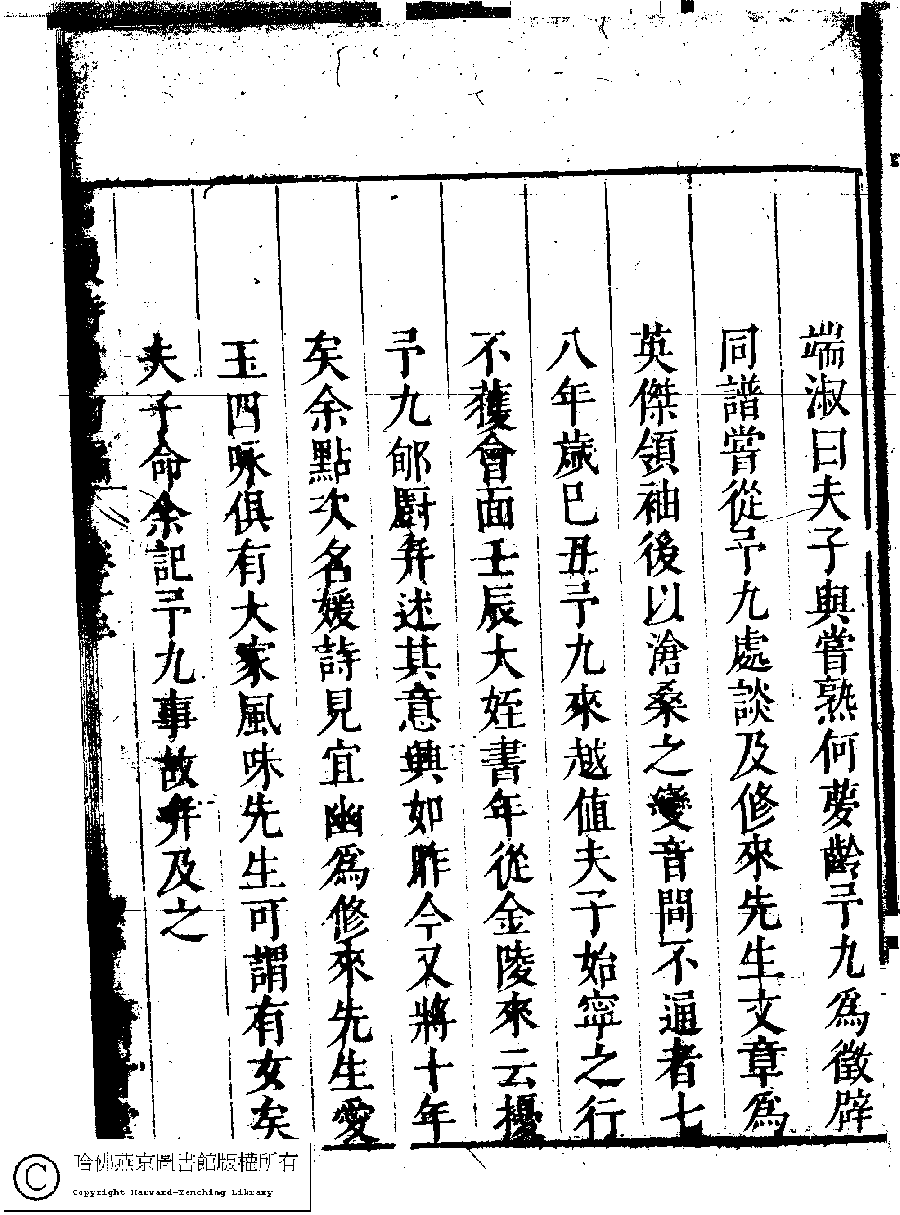 端淑曰夫子與嘗熟何夢齡予九為徵辟
同譜嘗從予九處談及修來先生文章為
英傑領袖後以滄桑之變音問不通者七
八年歲巳丑予九來越值夫子始寧之行
不獲會面壬辰大姪書年從金陵來云擾
予九郇廚弁述其意興如昨今又將十年
矣余點次名媛詩見宜幽為修來先生愛
玉四咏俱有大家風味先生可謂有女矣
夫子命余記予九事故弁及之
哈佛燕京圖書館版權所有
Copyright Harvard-Yenching Library